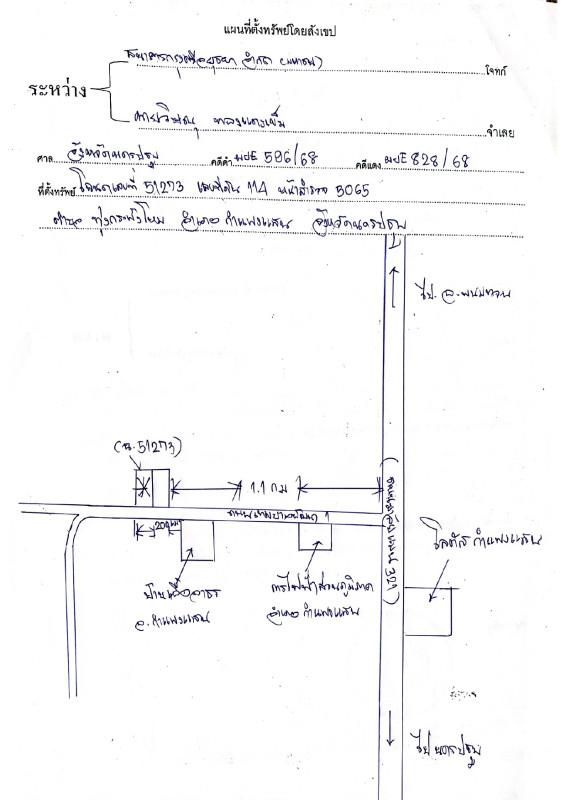 แผนที่ตั้งทรัพย์โดยสังเขป
ธนาคารกรุงศรีอยุธยา จำกัด (มหาชน) โจทก์
ระหว่าง
จำเลย
ศาล จังหวัดนครปฐม คดีดำ ผบE 596/68 คดีแดง ผบE 828/68
ที่ตั้งทรัพย์ โฉนดเลขที่ 51273 เลขที่ดิน 114 หน้าสำรวจ 5065
ตำบล ทุ่งกระพังโหม อำเภอ กำแพงแสน จังหวัดนครปฐม
ไป อ.พนมทวน
(ฉ.51273)
1.1 กม
200 ม
โลตัส กำแพงแสน
321)
บ้านเอื้ออาทร
อ.กำแพงแสน
การไฟฟ้าส่วนภูมิภาค
อำเภอ กำแพงแสน
ไป นครปฐม